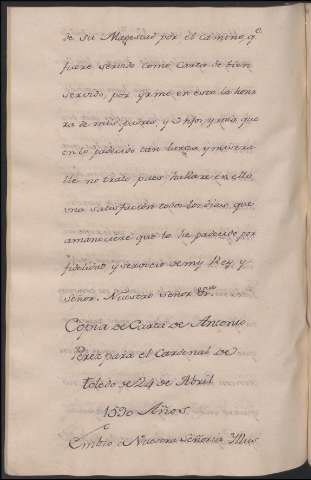 de Su Magestad por el camino, q.e
fuere servido como Carta de bien
servido, por q.e me en esto la honr
ra de mis padres, y de hijos, y mia que
en lo padecido tan larga y misera
ble no trato pues hallare en ello
una satisfacion todos los dias, que
amaneciere que lo he padecido por
fidelidad y servicio de my Rey, y
señor. Nuestro señor &.ra
Copia de Carta de Antonio
Perez para el Cardenal de
Toledo de 24 de Abril
1590 Años
Embio a Vuestra Señoria Illus